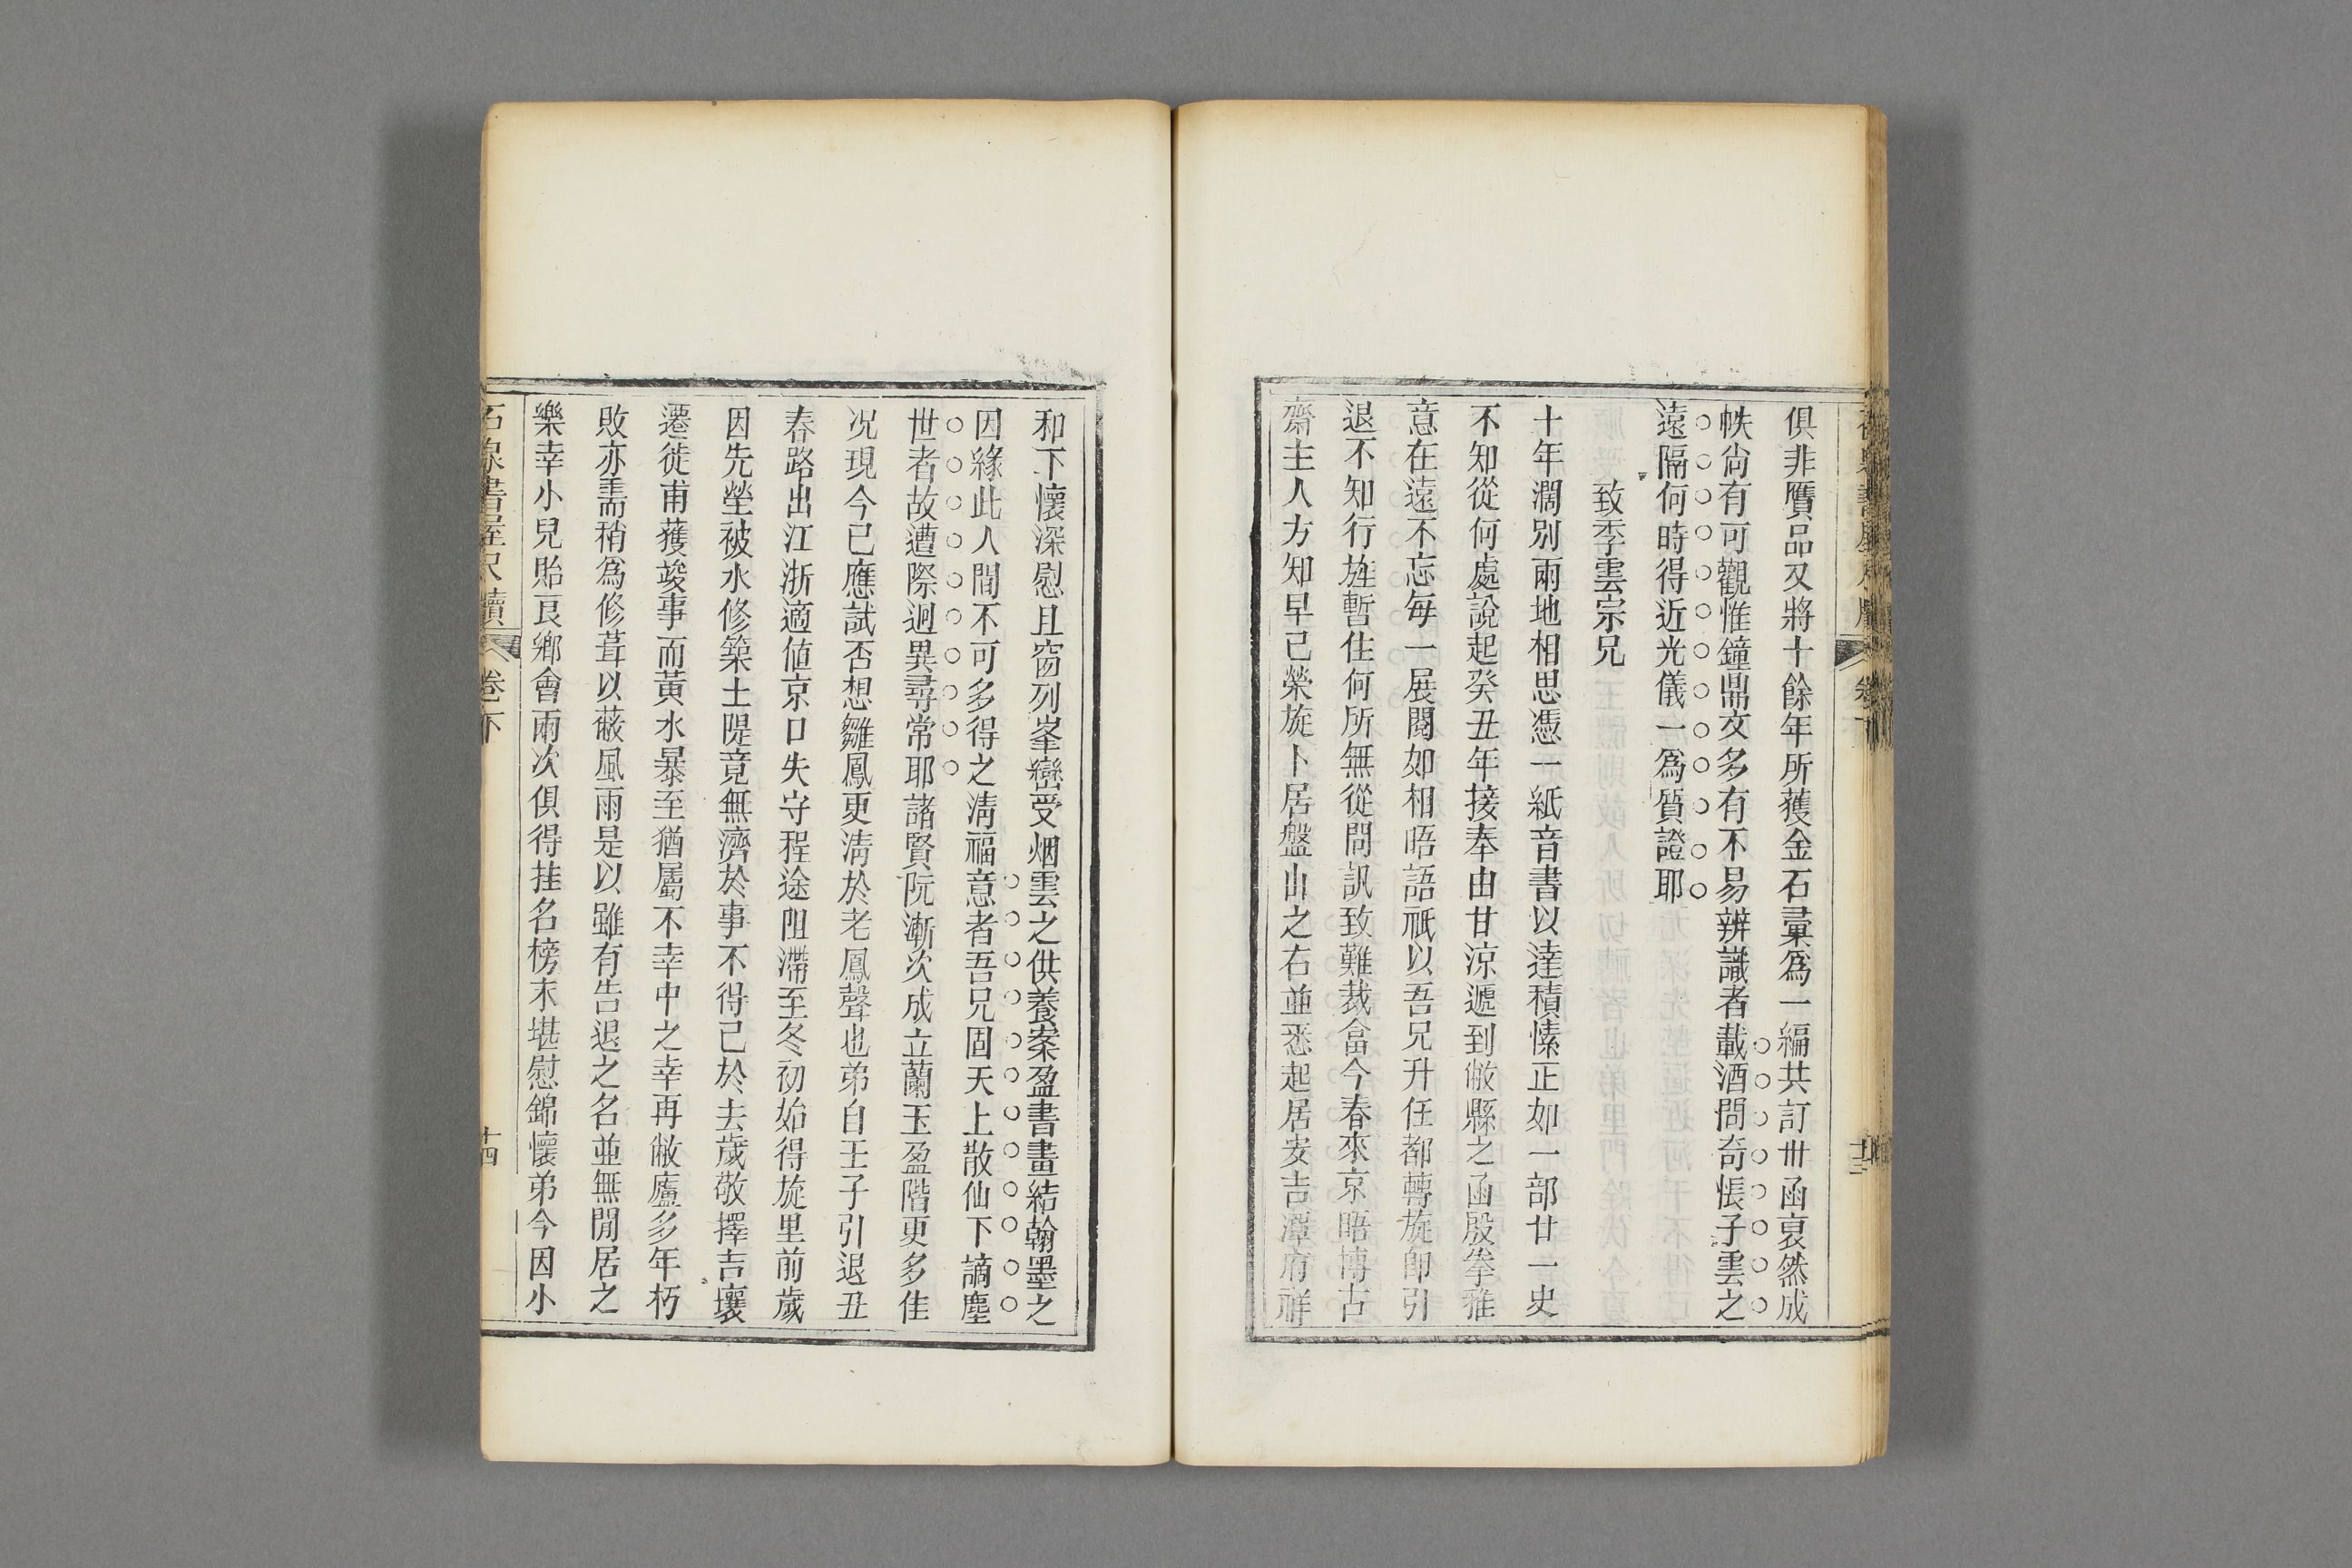 俱非贗品又將十餘年所獲金石彙爲一編共訂卅函裒然成
帙尙有可觀惟鐘鼎文多有不易辨識者載酒問奇悵子雲之
遠隔何時得近光儀一爲質證耶
致季雲宗兄
十年濶別兩地相思憑一紙音書以達積愫正如一部廿一史
不知從何處說起癸丑年接奉由甘涼遞到敝縣之函殷拳雅
意在遠不忘每一展閱如相晤語祇以吾兄升任都轉旋卽引
退不知行旌暫住何所無從問訊致難裁畣今春來京晤博古
齋主人方知早已榮旋卜居盤山之右並悉起居安吉潭府祥
和下懷深慰且窗列峯巒受烟雲之供養案盈書畫結翰墨之
因緣此人間不可多得之淸福意者吾兄固天上散仙下謫塵
世者故遭際迥異尋常耶諸賢阮漸次成立蘭玉盈階更多佳
况現今已應試否想雛鳳更淸於老鳳聲也弟自壬子引退丑
春路出江浙適値京口失守程途阻滯至冬初始得旋里前歲
因先塋被水修築土隄竟無濟於事不得已於去歲敬擇吉壤
遷徙甫獲竣事而黃水暴至猶屬不幸中之幸再敝廬多年朽
敗亦需稍爲修葺以蔽風雨是以雖有告退之名並無閒居之
樂幸小兒貽良鄉會兩次俱得挂名榜末堪慰錦懷弟今因小
石泉書屋尺牘
卷下
十四